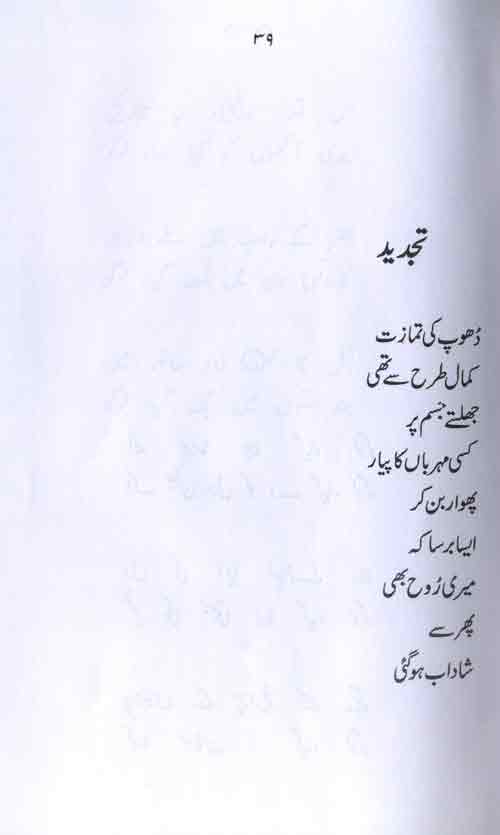 ۳۹
تجدید
دُھوپ کی تمازت
کمال طرح سے تھی
جھلتے جسم پر
کسی مہرباں کا پیار
پھوار بن کر
ایسا برسا کہ
میری رُوح بھی
پھر سے
شاداب ہوگئی